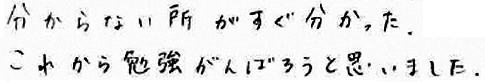 分からない所がすぐ分かった.
これから勉強がんばろうと思いました.